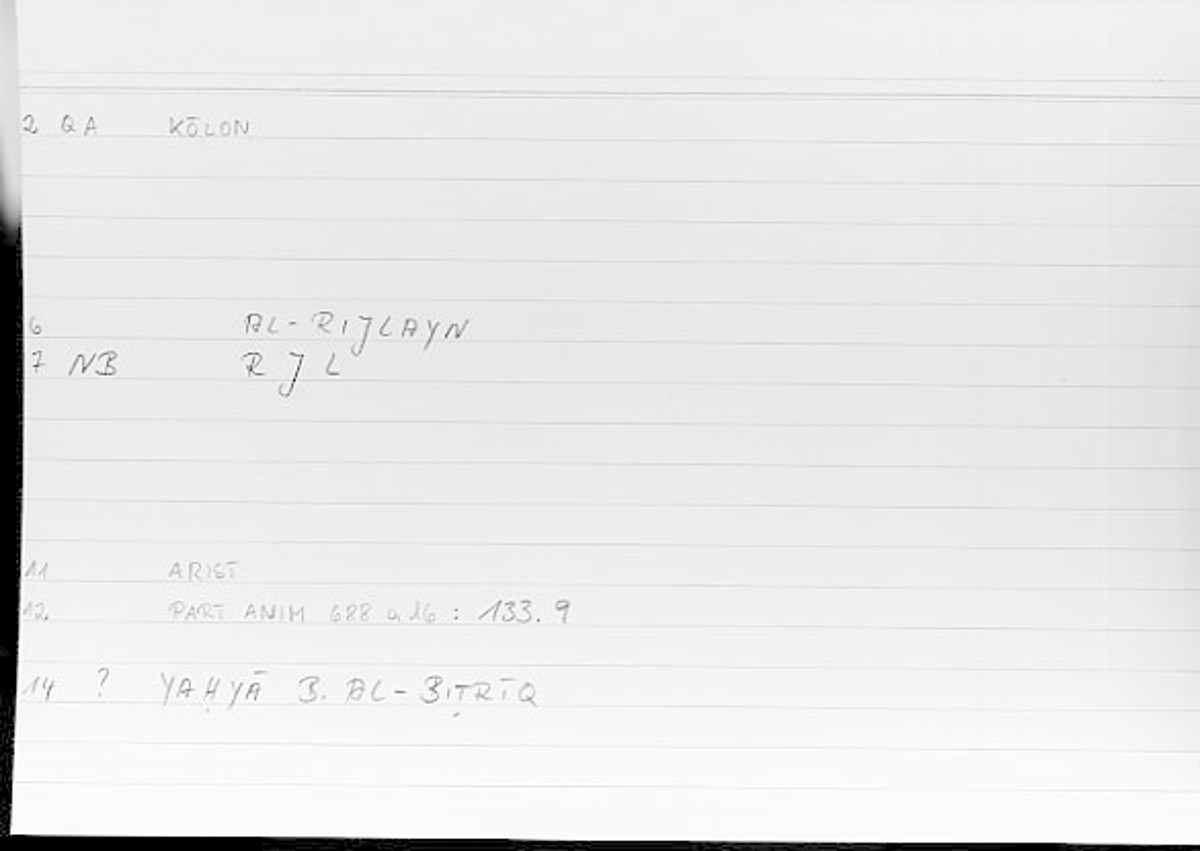 2 QA KŌLON
6 AL-RIJLAYN
7 NB R J L
11 ARIST
12 PART ANIM 688 a 16 : 133.9
14 ? YAḤYĀ B. AL-BIṬRĪQ